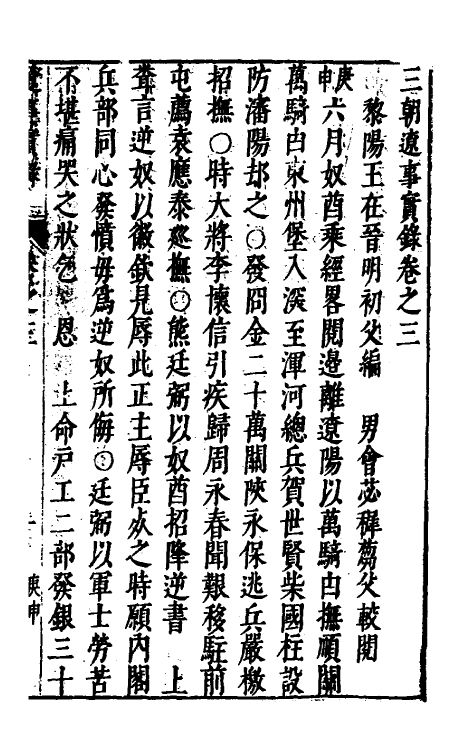 三朝遼事實錄卷之三
黎陽王在晉明初父編　男會苾穉蒭父較閱
庚申六月奴酋乘經畧閱邊離遼陽以萬騎由撫順關
萬騎由東州堡入深至渾河總兵賀世賢柴國柱設
防瀋陽却之〇發冏金二十萬關陝永保逃兵嚴檄
招撫〇時大將李懷信引疾歸周永春聞艱移駐前
屯薦袁應泰巡撫〇熊廷弼以奴酋招降逆書　上
聞言逆奴以徽欽見辱此正主辱臣死之時願內閣
兵部同心發憤毋爲逆奴所侮〇廷弼以軍士勞苦
不堪痛哭之狀乞　恩　上命戶工二部發銀三十
庚申